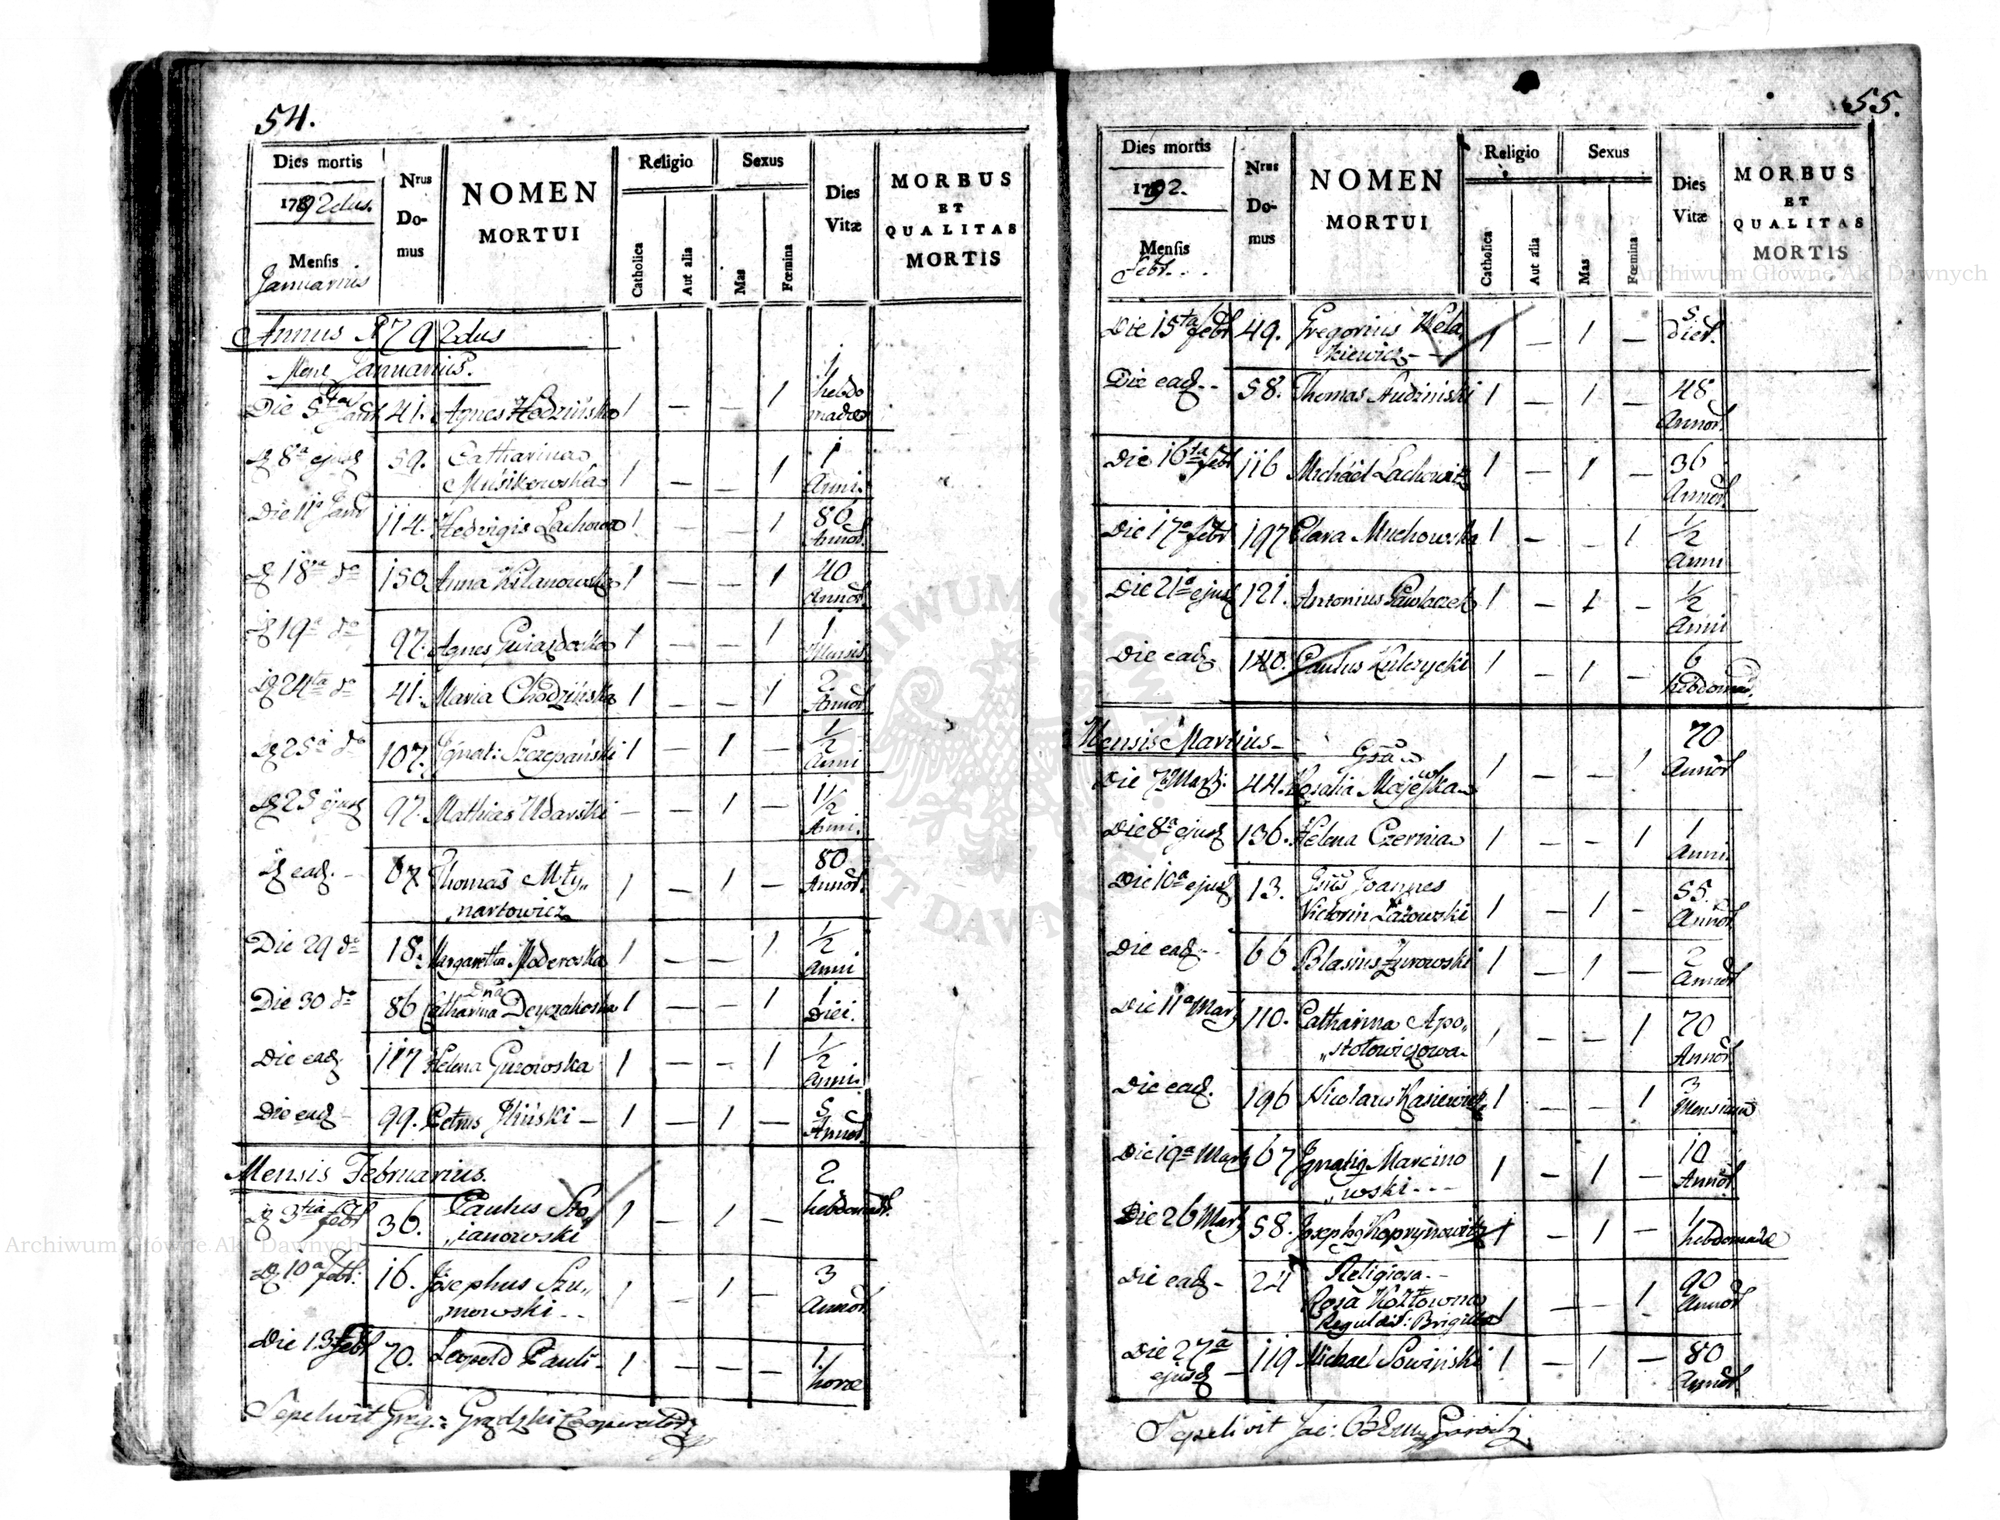 54.
Dies mortis
1792dus.
Mensis
Januarius
Nrus Do-mus
NOMEN
MORTUI
Religio
Catholica
Aut alia
Sexus
Mas
Fœmina
Dies
Vitæ
MORBUS
ET
QUALITAS
MORTIS
Annus 1792dus
Mens Januarius.
Die 5ta Jan 41. Agnes Hodzińska 1 — — 1 1 hebdomadæ
8a ejusd 59. Catharina Musikowska 1 — — 1 1 Anni.
Die 11a Janr 114. Hedvigis Lachowa 1 — — 1 86 Annor.
18a do 150. Anna Kilanowska 1 — — 1 40 Annor.
19a do 97. Agnes Gwiazdocka 1 — — 1 1 Mensis
24ta do 41. Maria Chodzińska 1 — — 1 2. Annor.
25a do 107. Ignat: Szczepański 1 — 1 — 1/2 Anni
25 ejusd 97. Mathias Udarski — — 1 — 1 1/2 Anni.
ead. - 67 Thomas Mły„
„nartowicz 1 — 1 — 80 Annor.
Die 29 do 18. Margaretha Moderoska 1 — — 1 1/2 Anni
Die 30 do 86 Catharina Dna Deyczakoska 1 — — 1 1 Diei.
Die ead 117 Helena Gurowska 1 — — 1 1/2 Anni.
Die ead - 99. Petrus Iliński — 1 — 1 — 5 Annor.
Mensis Februarius.
3tia febr 36. Paulus Sto„
„janowski 1 — 1 — 2. hebdomad.
10a febr: 16. Josephus Szu„
„mowski - - 1 — 1 — 3 Annor.
Die 13 febr 70. Leopold Pauli - 1 — — — 1. horæ
Sepelivit Greg.: Grądzki Cooperator
55.
Dies mortis
1792.
Mensis
Febr. . .
Nrus Do-mus
NOMEN
MORTUI
Religio
Catholica
Aut alia
Sexus
Mas
Fœmina
Dies
Vitæ
MORBUS
ET
QUALITAS
MORTIS
Die 15ta febr 49. Gregorius Wela„
kiewicz - - 1 — 1 — 5. dier.
Die ead - - 58. Thomas Audziński 1 — 1 — 48 Annor.
Die 16ta febr 116 Michael Lachowicz 1 — 1 — 36 Annor.
Die 17a febr 197 Clara Muchowska 1 — — 1 1/2 Anni
Die 21a ejusd 121. Antonius Pawlaczek 1 — 1 — 1/2 Anni
Die ead 140. Paulus Kulczycki 1 — 1 — 6 hebdomad.
Mensis Martius -
Die 7 Marti: 44. Gsa Rosalia Majewska 1 — — 1 70 Annor
Die 8a ejusd 136. Helena Czernia 1 — — 1 1 Anni
Die 10a ejusd 13. Gsus Joannes
Victorin Łazowski 1 — 1 — 55. Annor
Die ead - - 66 Blasius Żurowski 1 — 1 — 2 Annor
Die 11a Mar 110. Catharina Apo„
„stołowiczowa 1 — — 1 70 Annor
Die ead. 196 Nicolaus Kasiewicz 1 — — 1 3 Mensium
Die 19a Mar 67 Ignatig Marcino
„wski - - - 1 — 1 — 10 Annor
Die 26 Mar 58. Josephg Koprynowicz 1 — 1 — 1 hebdomadæ
Die ead - 24 Religiosa -
Rosa Kozłowna
Regul. S: Brigittæ 1 — — 1 90 Annor
Die 27a
ejusd — 119 Michael Sowiński 1 — 1 — 80 Annor
Sepelivit Jac:
Archiwum Główne Akt Dawnych
Archiwum Główne Akt Dawnych